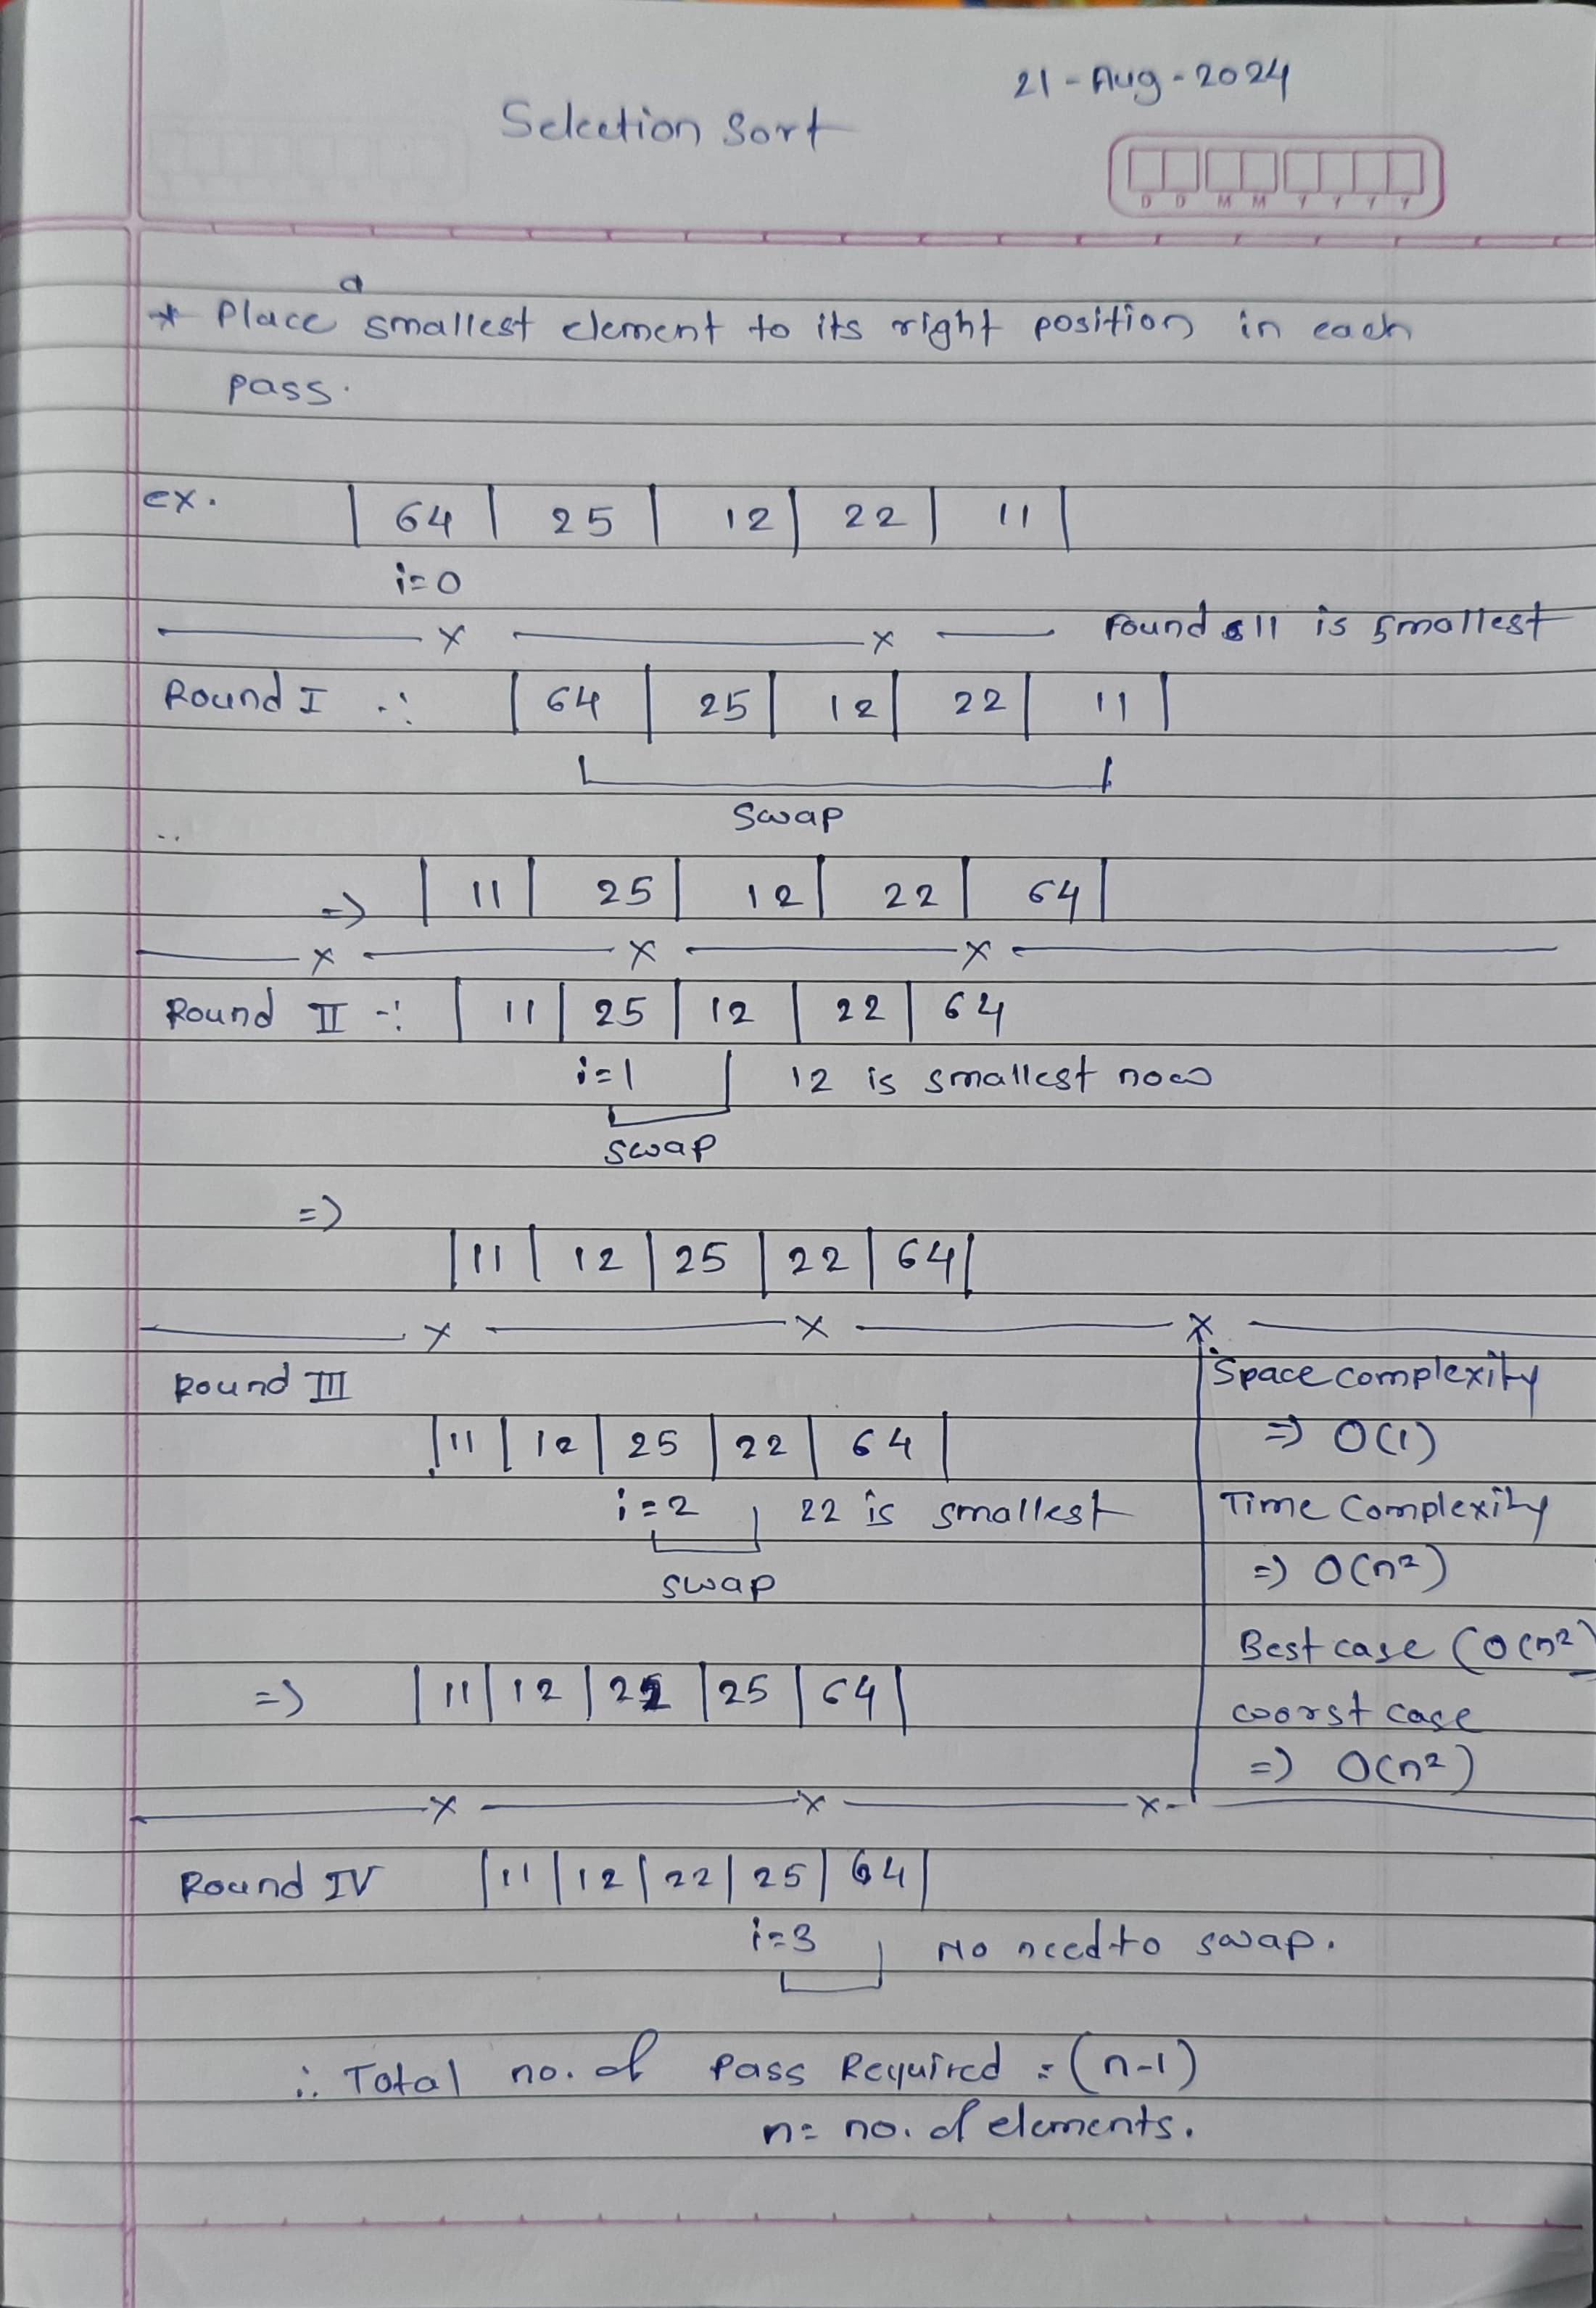 21-Aug-2024
Selection Sort
D D M M Y Y Y Y
a
* Place smallest element to its right position in each
pass.
ex. | 64 | 25 | 12 | 22 | 11 |
i=0
Found 11 is smallest
Round I :- | 64 | 25 | 12 | 22 | 11 |
swap
=> | 11 | 25 | 12 | 22 | 64 |
Round II -: | 11 | 25 | 12 | 22 | 64
i=1 12 is smallest now
swap
=>
| 11 | 12 | 25 | 22 | 64 |
Round III
| 11 | 12 | 25 | 22 | 64 |
i=2 22 is smallest
swap
=> | 11 | 12 | 22 | 25 | 64 |
Space complexity
=> O(1)
Time Complexity
=> O(n²)
Best case (O(n²)
worst case
=> O(n²)
Round IV | 11 | 12 | 22 | 25 | 64 |
i=3 No need to swap.
∴ Total no. of Pass Required = (n-1)
n= no. of elements.